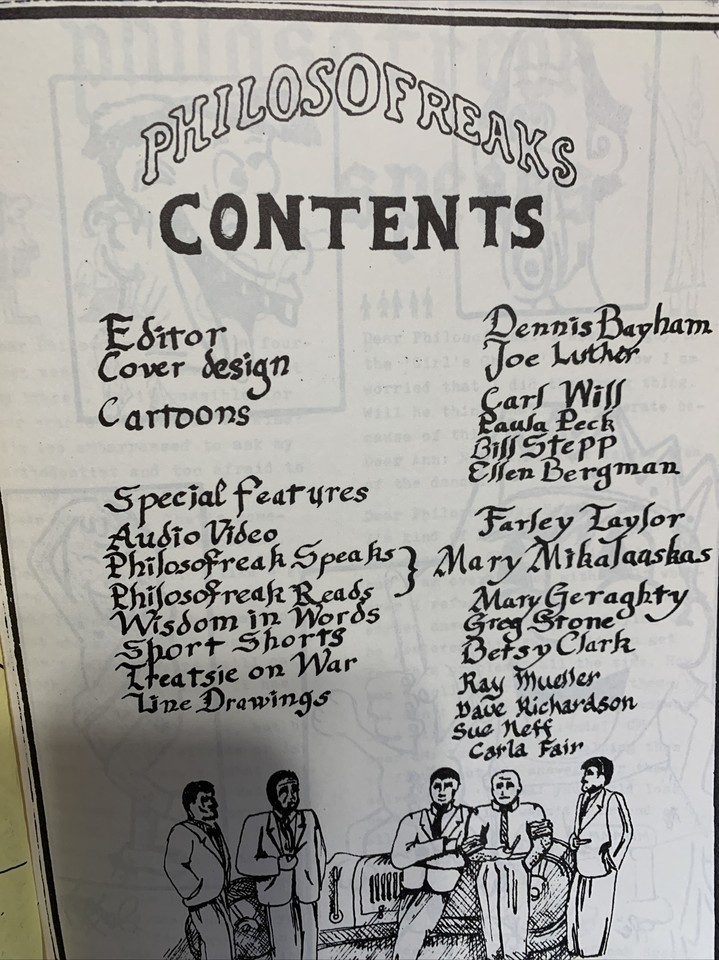 PHILOSOFREAKS
CONTENTS
Editor
Cover design
Cartoons
Special Features
Audio Video
Philosofreak Speaks }
Philosofreak Reads
Wisdom in Words
Sport Shorts
Treatsie on War
Line Drawings
Dennis Bayham
Joe Luther
Carl Will
Paula Peck
Bill Stepp
Ellen Bergman
Farley Taylor
Mary Mikalaaskas
Mary Geraghty
Greg Stone
Betsy Clark
Ray Mueller
Dave Richardson
Sue Neff
Carla Fair